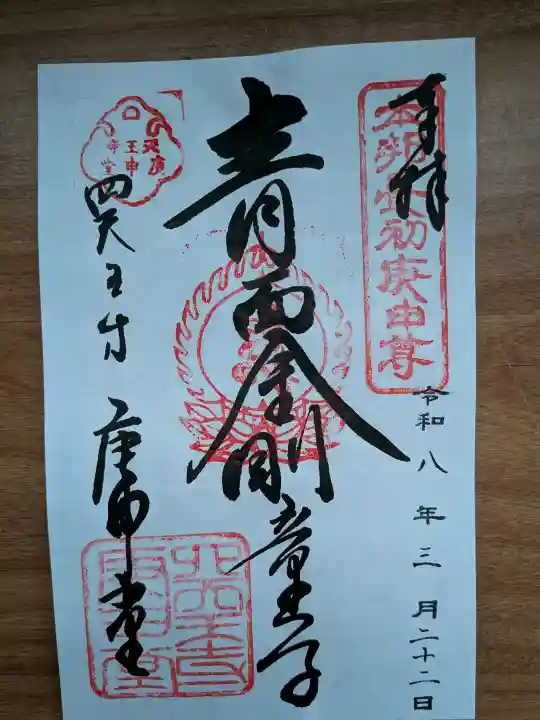 奉拝
本邦最初庚申尊
令和八年三月二十二日
青面金剛童子
四天王寺
庚申堂
四天王寺
庚申堂